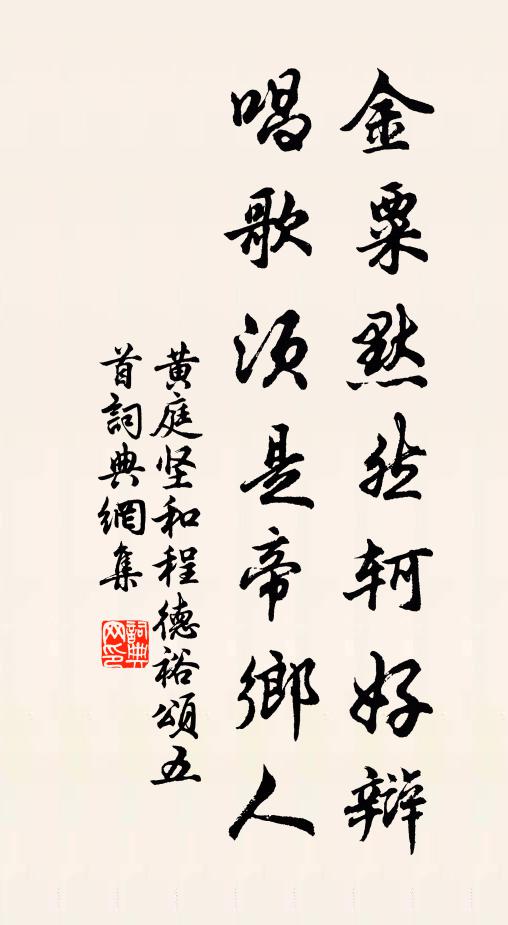 金粟默然轲好辯
唱歌须是帝鄉人
黄庭坚和程德裕頌五
首詞典網集
詞典网印